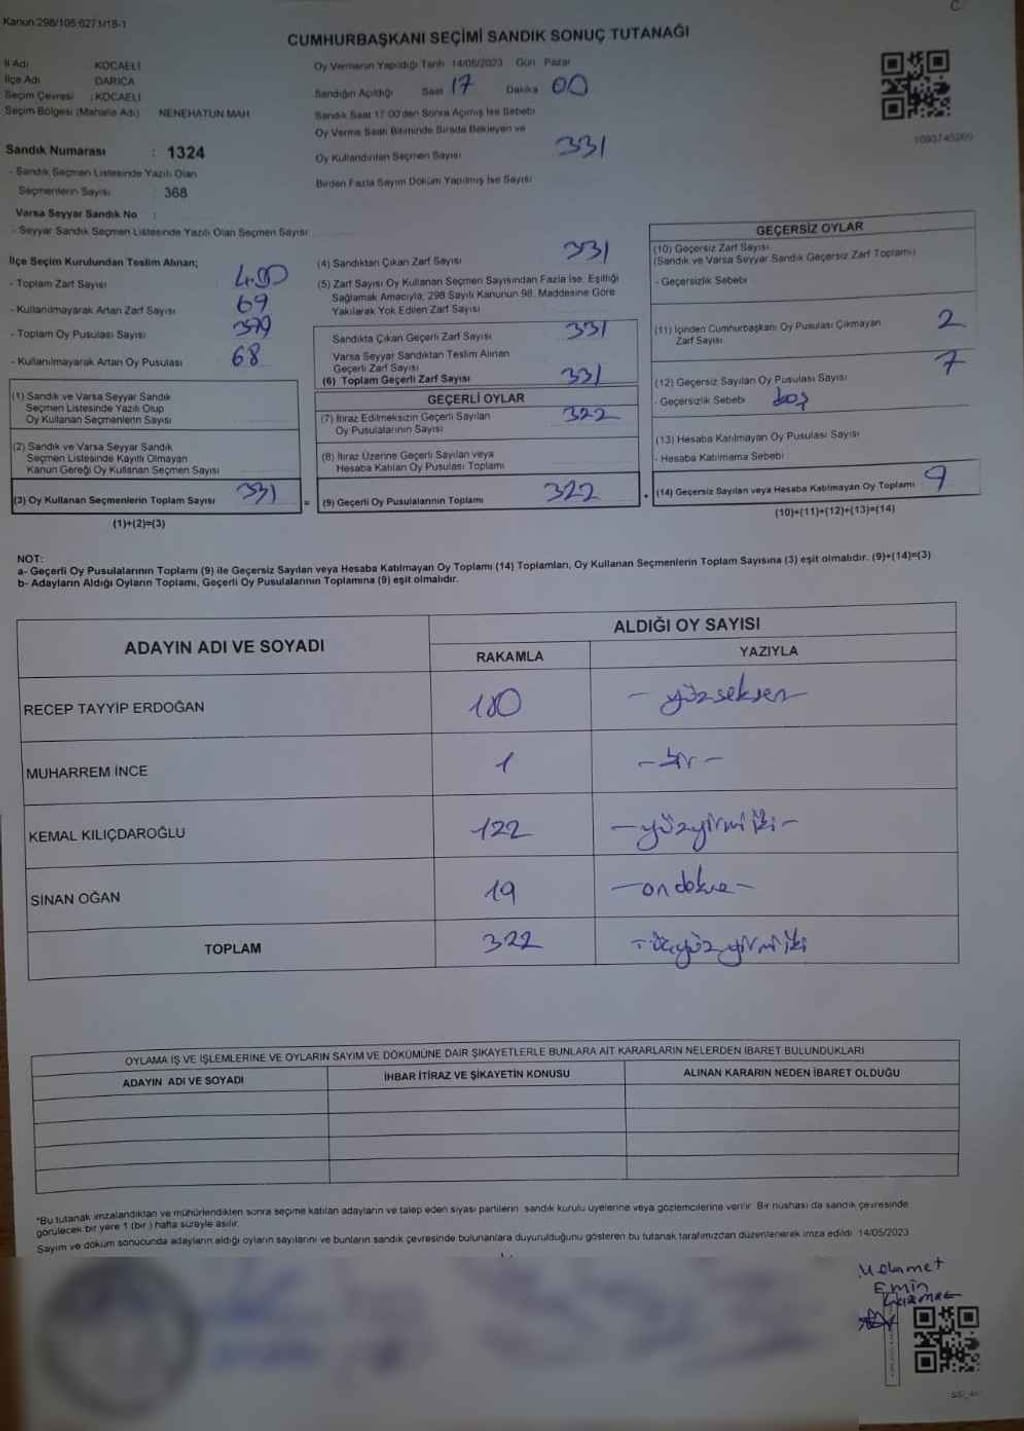 Kanun:298/105:6271/18-1
CUMHURBAŞKANI SEÇİMİ SANDIK SONUÇ TUTANAĞI
İl Adı KOCAELİ
İlçe Adı DARICA
Seçim Çevresi : KOCAELİ
Seçim Bölgesi (Mahalle Adı) NENEHATUN MAH
Sandık Numarası : 1324
- Sandık Seçmen Listesinde Yazılı Olan
Seçmenlerin Sayısı 368
Varsa Seyyar Sandık No :
- Seyyar Sandık Seçmen Listesinde Yazılı Olan Seçmen Sayısı
Oy Vermenin Yapıldığı Tarih 14/05/2023 Gün Pazar
Sandığın Açıldığı Saat 17 Dakika 00
Sandık Saat 17:00'den Sonra Açılmış İse Sebebi
Oy Verme Saati Bitiminde Sırada Bekleyen ve
Oy Kullandırılan Seçmen Sayısı 331
Birden Fazla Sayım Döküm Yapılmış İse Sayısı
İlçe Seçim Kurulundan Teslim Alınan;
- Toplam Zarf Sayısı 400
- Kullanılmayarak Artan Zarf Sayısı 69
- Toplam Oy Pusulası Sayısı 399
- Kullanılmayarak Artan Oy Pusulası 68
(1) Sandık ve Varsa Seyyar Sandık
Seçmen Listesinde Yazılı Olup
Oy Kullanan Seçmenlerin Sayısı
(2) Sandık ve Varsa Seyyar Sandık
Seçmen Listesinde Kayıtlı Olmayan
Kanun Gereği Oy Kullanan Seçmen Sayısı
(3) Oy Kullanan Seçmenlerin Toplam Sayısı 331
(1)+(2)=(3)
(4) Sandıktan Çıkan Zarf Sayısı 331
(5) Zarf Sayısı Oy Kullanan Seçmen Sayısından Fazla İse, Eşitliği
Sağlamak Amacıyla, 298 Sayılı Kanunun 98. Maddesine Göre
Yakılarak Yok Edilen Zarf Sayısı
Sandıkta Çıkan Geçerli Zarf Sayısı 331
Varsa Seyyar Sandıktan Teslim Alınan
Geçerli Zarf Sayısı
(6) Toplam Geçerli Zarf Sayısı 331
GEÇERLİ OYLAR
(7) İtiraz Edilmeksizin Geçerli Sayılan
Oy Pusulalarının Sayısı 322
(8) İtiraz Üzerine Geçerli Sayılan veya
Hesaba Katılan Oy Pusulası Toplamı
= (9) Geçerli Oy Pusulalarının Toplamı 322
GEÇERSİZ OYLAR
(10) Geçersiz Zarf Sayısı
(Sandık ve Varsa Seyyar Sandık Geçersiz Zarf Toplamı)
- Geçersizlik Sebebi
(11) İçinden Cumhurbaşkanı Oy Pusulası Çıkmayan
Zarf Sayısı 2
(12) Geçersiz Sayılan Oy Pusulası Sayısı 7
- Geçersizlik Sebebi boş
(13) Hesaba Katılmayan Oy Pusulası Sayısı
- Hesaba Katılmama Sebebi
+ (14) Geçersiz Sayılan veya Hesaba Katılmayan Oy Toplamı 9
(10)+(11)+(12)+(13)=(14)
NOT:
a- Geçerli Oy Pusulalarının Toplamı (9) ile Geçersiz Sayılan veya Hesaba Katılmayan Oy Toplamı (14) Toplamları, Oy Kullanan Seçmenlerin Toplam Sayısına (3) eşit olmalıdır. (9)+(14)=(3)
b- Adayların Aldığı Oyların Toplamı, Geçerli Oy Pusulalarının Toplamına (9) eşit olmalıdır.
ADAYIN ADI VE SOYADI
ALDIĞI OY SAYISI
RAKAMLA YAZIYLA
RECEP TAYYİP ERDOĞAN 180 - yüzseksen -
MUHARREM İNCE 1 - bir -
KEMAL KILIÇDAROĞLU 122 - yüzyirmi iki -
SİNAN OĞAN 19 - on dokuz -
TOPLAM 322 - üçyüz yirmi iki
OYLAMA İŞ VE İŞLEMLERİNE VE OYLARIN SAYIM VE DÖKÜMÜNE DAİR ŞİKAYETLERLE BUNLARA AİT KARARLARIN NELERDEN İBARET BULUNDUKLARI
ADAYIN ADI VE SOYADI İHBAR İTİRAZ VE ŞİKAYETİN KONUSU ALINAN KARARIN NEDEN İBARET OLDUĞU
"Bu tutanak imzalandıktan ve mühürlendikten sonra seçime katılan adayların ve talep eden siyasi partilerin sandık kurulu üyelerine veya gözlemcilerine verilir. Bir nüshası da sandık çevresinde
görülecek bir yere 1 (bir) hafta süreyle asılır.
Sayım ve döküm sonucunda adayların aldığı oyların sayılarını ve bunların sandık çevresinde bulunanlara duyurulduğunu gösteren bu tutanak tarafımızdan düzenlenerek imza edildi. 14/05/2023
Mehmet
Emin